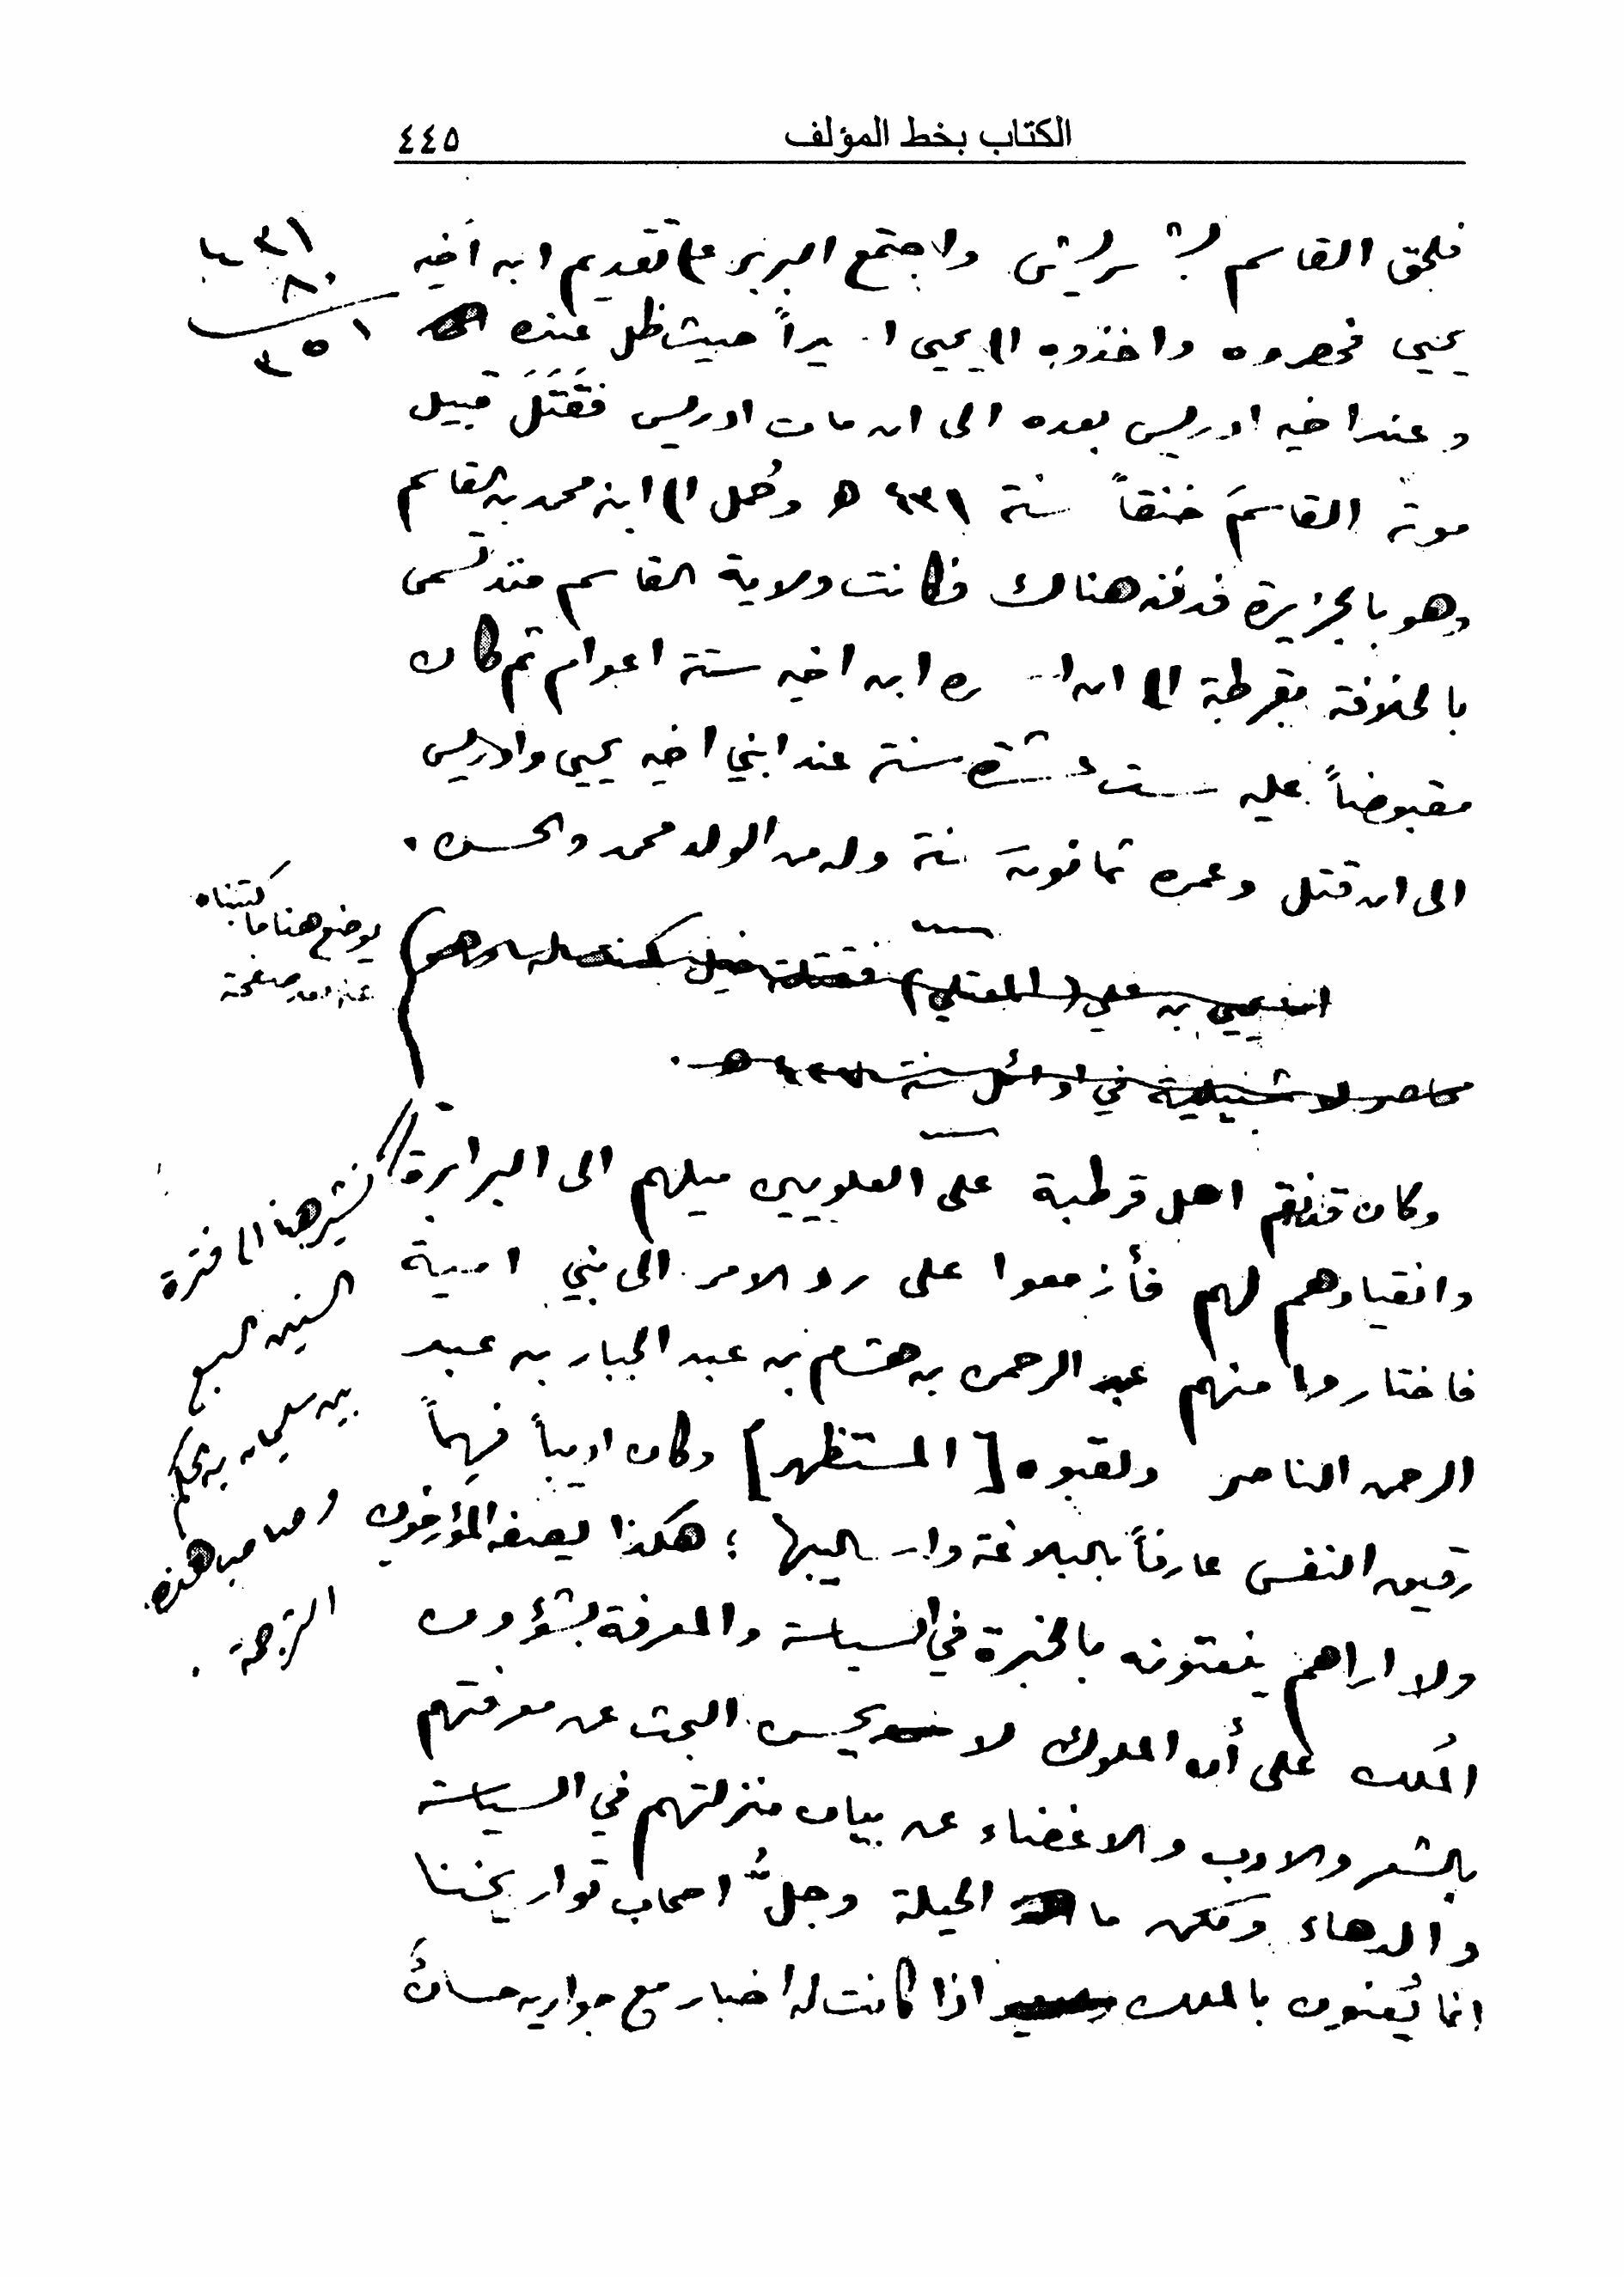 الكتاب بخط المؤلف ٤٤٥
فلحق القاسم بشريش واجتمع البربر على تقديم ابن أخيه
يحيى فحصروه واخذوه الى يحيى اسيراً حيث ظل عنده
وعند اخيه ادريس بعده الى ان مات ادريس فقَتَلَ قبيل
موته القاسمَ خنقاً سنة ٤٣١ ه وحُمل الى ابنه محمد بن القاسم
وهو بالجزيرة فدفنه هناك فكانت ولاية القاسم منذ تسمى
بالخلافة بقرطبة الى ان اسره ابن اخيه ستة اعوام ثم كان
مقبوضاً عليه ست عشرة سنة عند ابني اخيه يحيى وادريس
الى ان قتل وعمره ثمانون سنة وله من الولد محمد والحسن .
٤٣١
٨٠
٣٥١
اما يحيى بن علي (المعتلي) فقتلته خيل وهو
محاصر لاشبيلية في اوائل سنة ٤٢٧ ه .
يوضع هنا ما كتبناه
صفحة
وكان قد نقم اهل قرطبة على العلويين ميلهم الى البرابرة
وانقيادهم لهم فأزمعوا على رد الامر الى بني امية
فاختاروا منهم عبد الرحمن بن هشام بن عبد الجبار بن عبد
الرحمن الناصر ولقبوه [المستظهر] وكان اديباً فهماً
رقيق النفس عارفاً بالبلاغة واساليبها ؛ هكذا يصفه المؤرخون
ولا اراهم ينعتونه بالخبرة في السياسة والمعرفة بشؤون
المُلك على أن الملوك لا يحسن البحث عن معرفتهم
بالشعر والادب والاغضاء عن بيان منزلتهم في السياسة
والدهاء ولكن ما الحيلة وجلُّ اصحاب تواريخنا
انما يُعنون بالملك اذا كانت له اخبار مع جواريه حسانُ
نشير هنا الى فترة
السنين السبع
بين سليمان بن الحكم
وصاحب هذه
الترجمة .